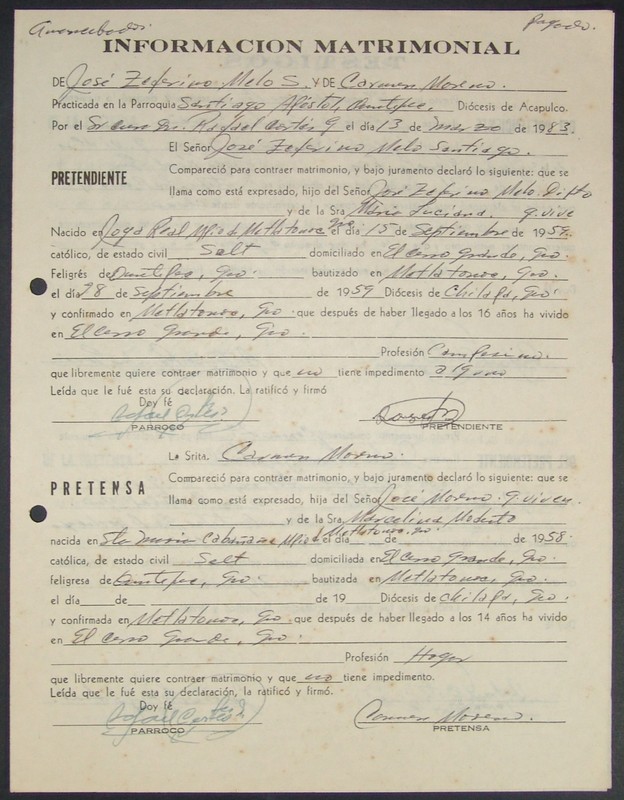 Amancebados
Pagado.
INFORMACION MATRIMONIAL
DE José Zeferino Melo S. Y DE Carmen Moreno.
Practicada en la Parroquia Santiago Apóstol, Diócesis de Acapulco.
Por el Sr. cura Dn. Rafael Cortés G el día 13 de marzo de 1983.
El Señor José Zeferino Melo Santiago.
Compareció para contraer matrimonio, y bajo juramento declaró lo siguiente: que se
PRETENDIENTE
llama como está expresado, hijo del Señor José Zeferino Melo. Difto
y de la Sra. María Luciana q. vive
Nacido en Joya Real Mpio de Metlatonoc Gro el día 15 de Septiembre de 1959.
católico, de estado civil Solt domiciliado en El Cerro Grande, Gro.
Feligrés de Gro. bautizado en Metlatonoc, Gro.
el día 28 de Septiembre de 1959 Diócesis de Chilapa, Gro.
y confirmado en Metlatonoc, Gro que después de haber llegado a los 16 años ha vivido
en El Cerro Grande, Gro.
Profesión Campesino.
que libremente quiere contraer matrimonio y que no tiene impedimento alguno
Leída que le fué esta su declaración. La ratificó y firmó
Doy fé
Rafael Cortés
PARROCO
PRETENDIENTE
La Srita. Carmen Moreno.
Compareció para contraer matrimonio, y bajo juramento declaró lo siguiente: que se
PRETENSA
llama como está expresado, hija del Señor José Moreno. q. viven
y de la Sra. Marcelina Modesto
nacida en Sta María Mpio d Metlatonoc, Gro. el día de de 1958.
católica, de estado civil Solt domiciliada en El Cerro Grande, Gro.
feligresa de Gro. bautizada en Metlatonoc, Gro.
el día de de 19 Diócesis de Chilapa, Gro.
y confirmada en Metlatonoc, Gro que después de haber llegado a los 14 años ha vivido
en El Cerro Grande, Gro.
Profesión Hogar
que libremente quiere contraer matrimonio y que no tiene impedimento.
Leída que le fué esta su declaración, la ratificó y firmó.
Doy fé
Rafael Cortés G.
PARROCO
Carmen Moreno.
PRETENSA